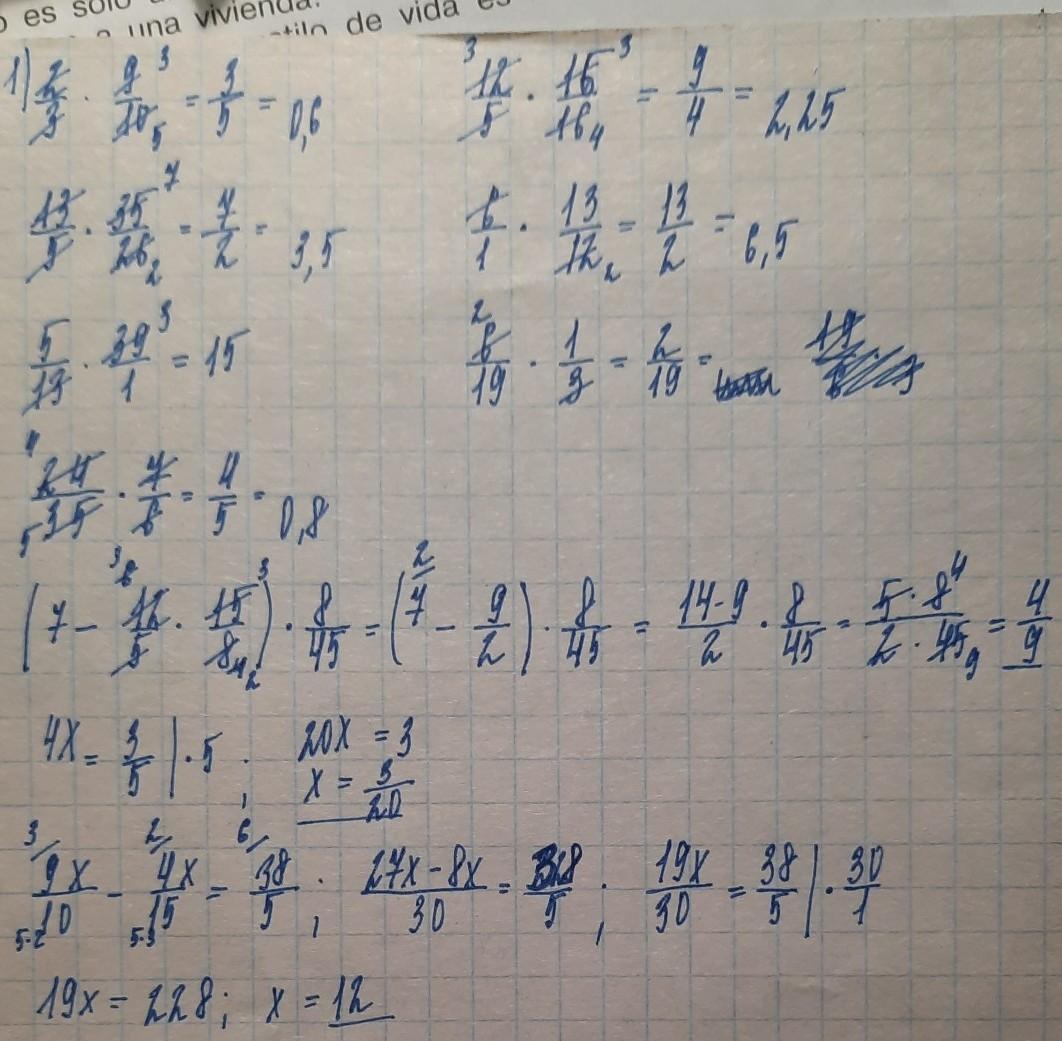 o es solo
a una vivienda.
estilo de vida es
1) 2/3 · 9/10 = 3/5 = 0,6
12/5 · 15/16 = 9/4 = 2,25
13/5 · 35/26 = 7/2 = 3,5
6/1 · 13/12 = 13/2 = 6,5
5/13 · 39/1 = 15
6/19 · 1/3 = 2/19 =
24/35 · 7/6 = 4/5 = 0,8
(7 - 12/5 · 15/8) · 8/45 = (7 - 9/2) · 8/45 = 14-9/2 · 8/45 = 5·8/2·45 = 4/9
4x = 3/5 | · 5 ; 20x = 3
x = 3/20
9x/10 - 4x/15 = 38/5 ; 27x - 8x/30 = 38/5 ; 19x/30 = 38/5 | · 30/1
19x = 228 ; x = 12